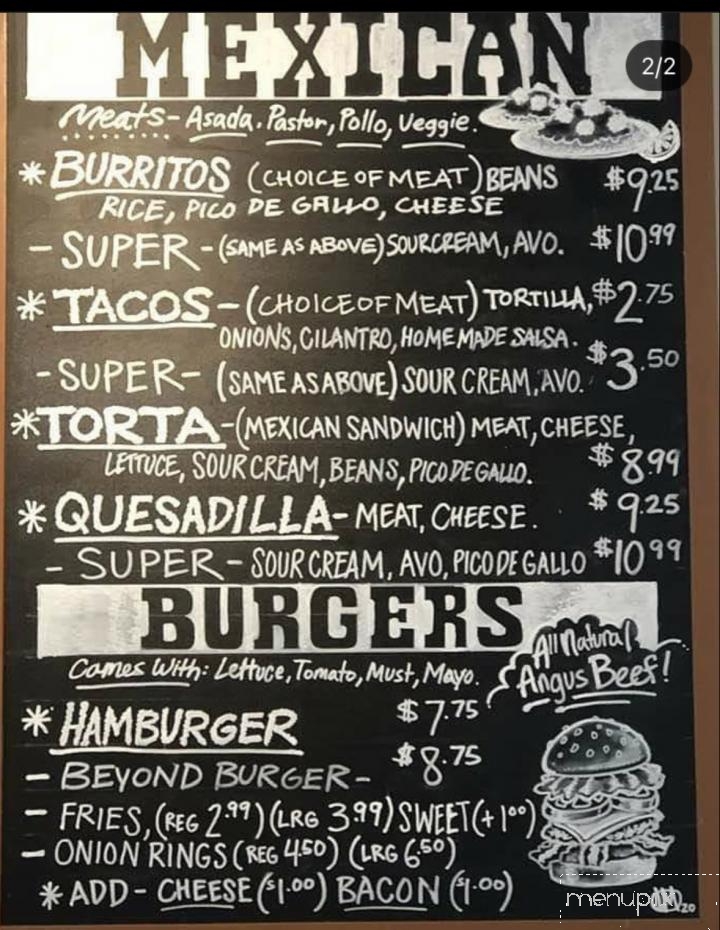 MEXICAN
2/2
Meats- Asada. Pastor, Pollo, Veggie.
* BURRITOS (CHOICE OF MEAT) BEANS $9.25
RICE, PICO DE GALLO, CHEESE
- SUPER - (SAME AS ABOVE) SOURCREAM, AVO. $10.99
* TACOS - (CHOICE OF MEAT) TORTILLA, $2.75
ONIONS, CILANTRO, HOMEMADE SALSA.
- SUPER - (SAME AS ABOVE) SOUR CREAM, AVO. $3.50
* TORTA - (MEXICAN SANDWICH) MEAT, CHEESE,
LETTUCE, SOUR CREAM, BEANS, PICO DE GALLO. $8.99
* QUESADILLA - MEAT, CHEESE. $9.25
- SUPER - SOUR CREAM, AVO, PICO DE GALLO $10.99
BURGERS
Comes With: Lettuce, Tomato, Must, Mayo.
All Natural
Angus Beef!
* HAMBURGER $7.75
- BEYOND BURGER - $8.75
- FRIES, (REG 2.99) (LRG 3.99) SWEET (+1.00)
- ONION RINGS (REG 4.50) (LRG 6.50)
* ADD - CHEESE ($1.00) BACON ($1.00)